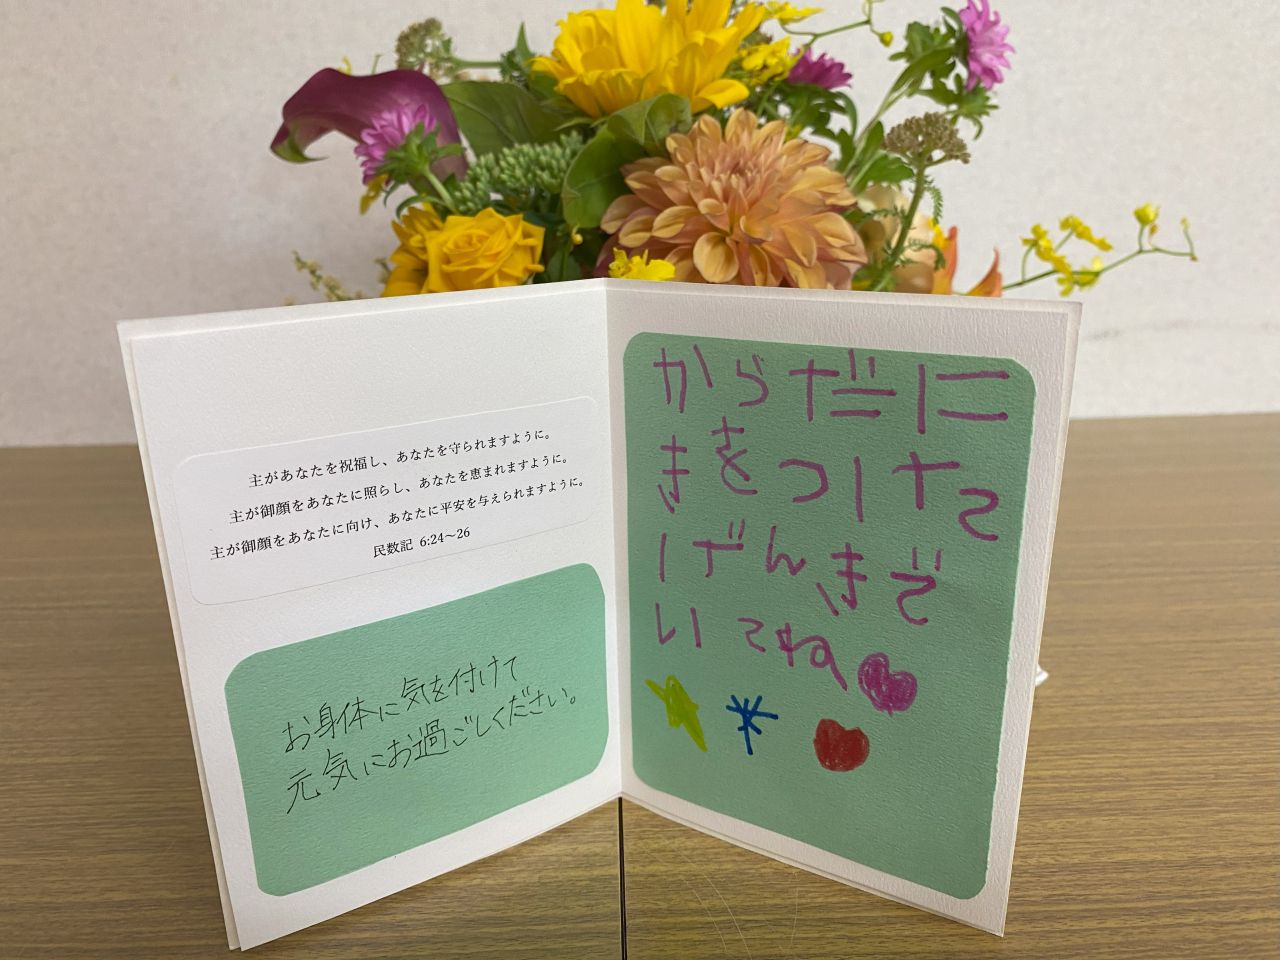 主があなたを祝福し、あなたを守られますように。
主が御顔をあなたに照らし、あなたを恵まれますように。
主が御顔をあなたに向け、あなたに平安を与えられますように。
民数記 6:24～26
お身体に気を付けて
元気にお過ごしください。
からだに
きをつけて
げんきで
いてね